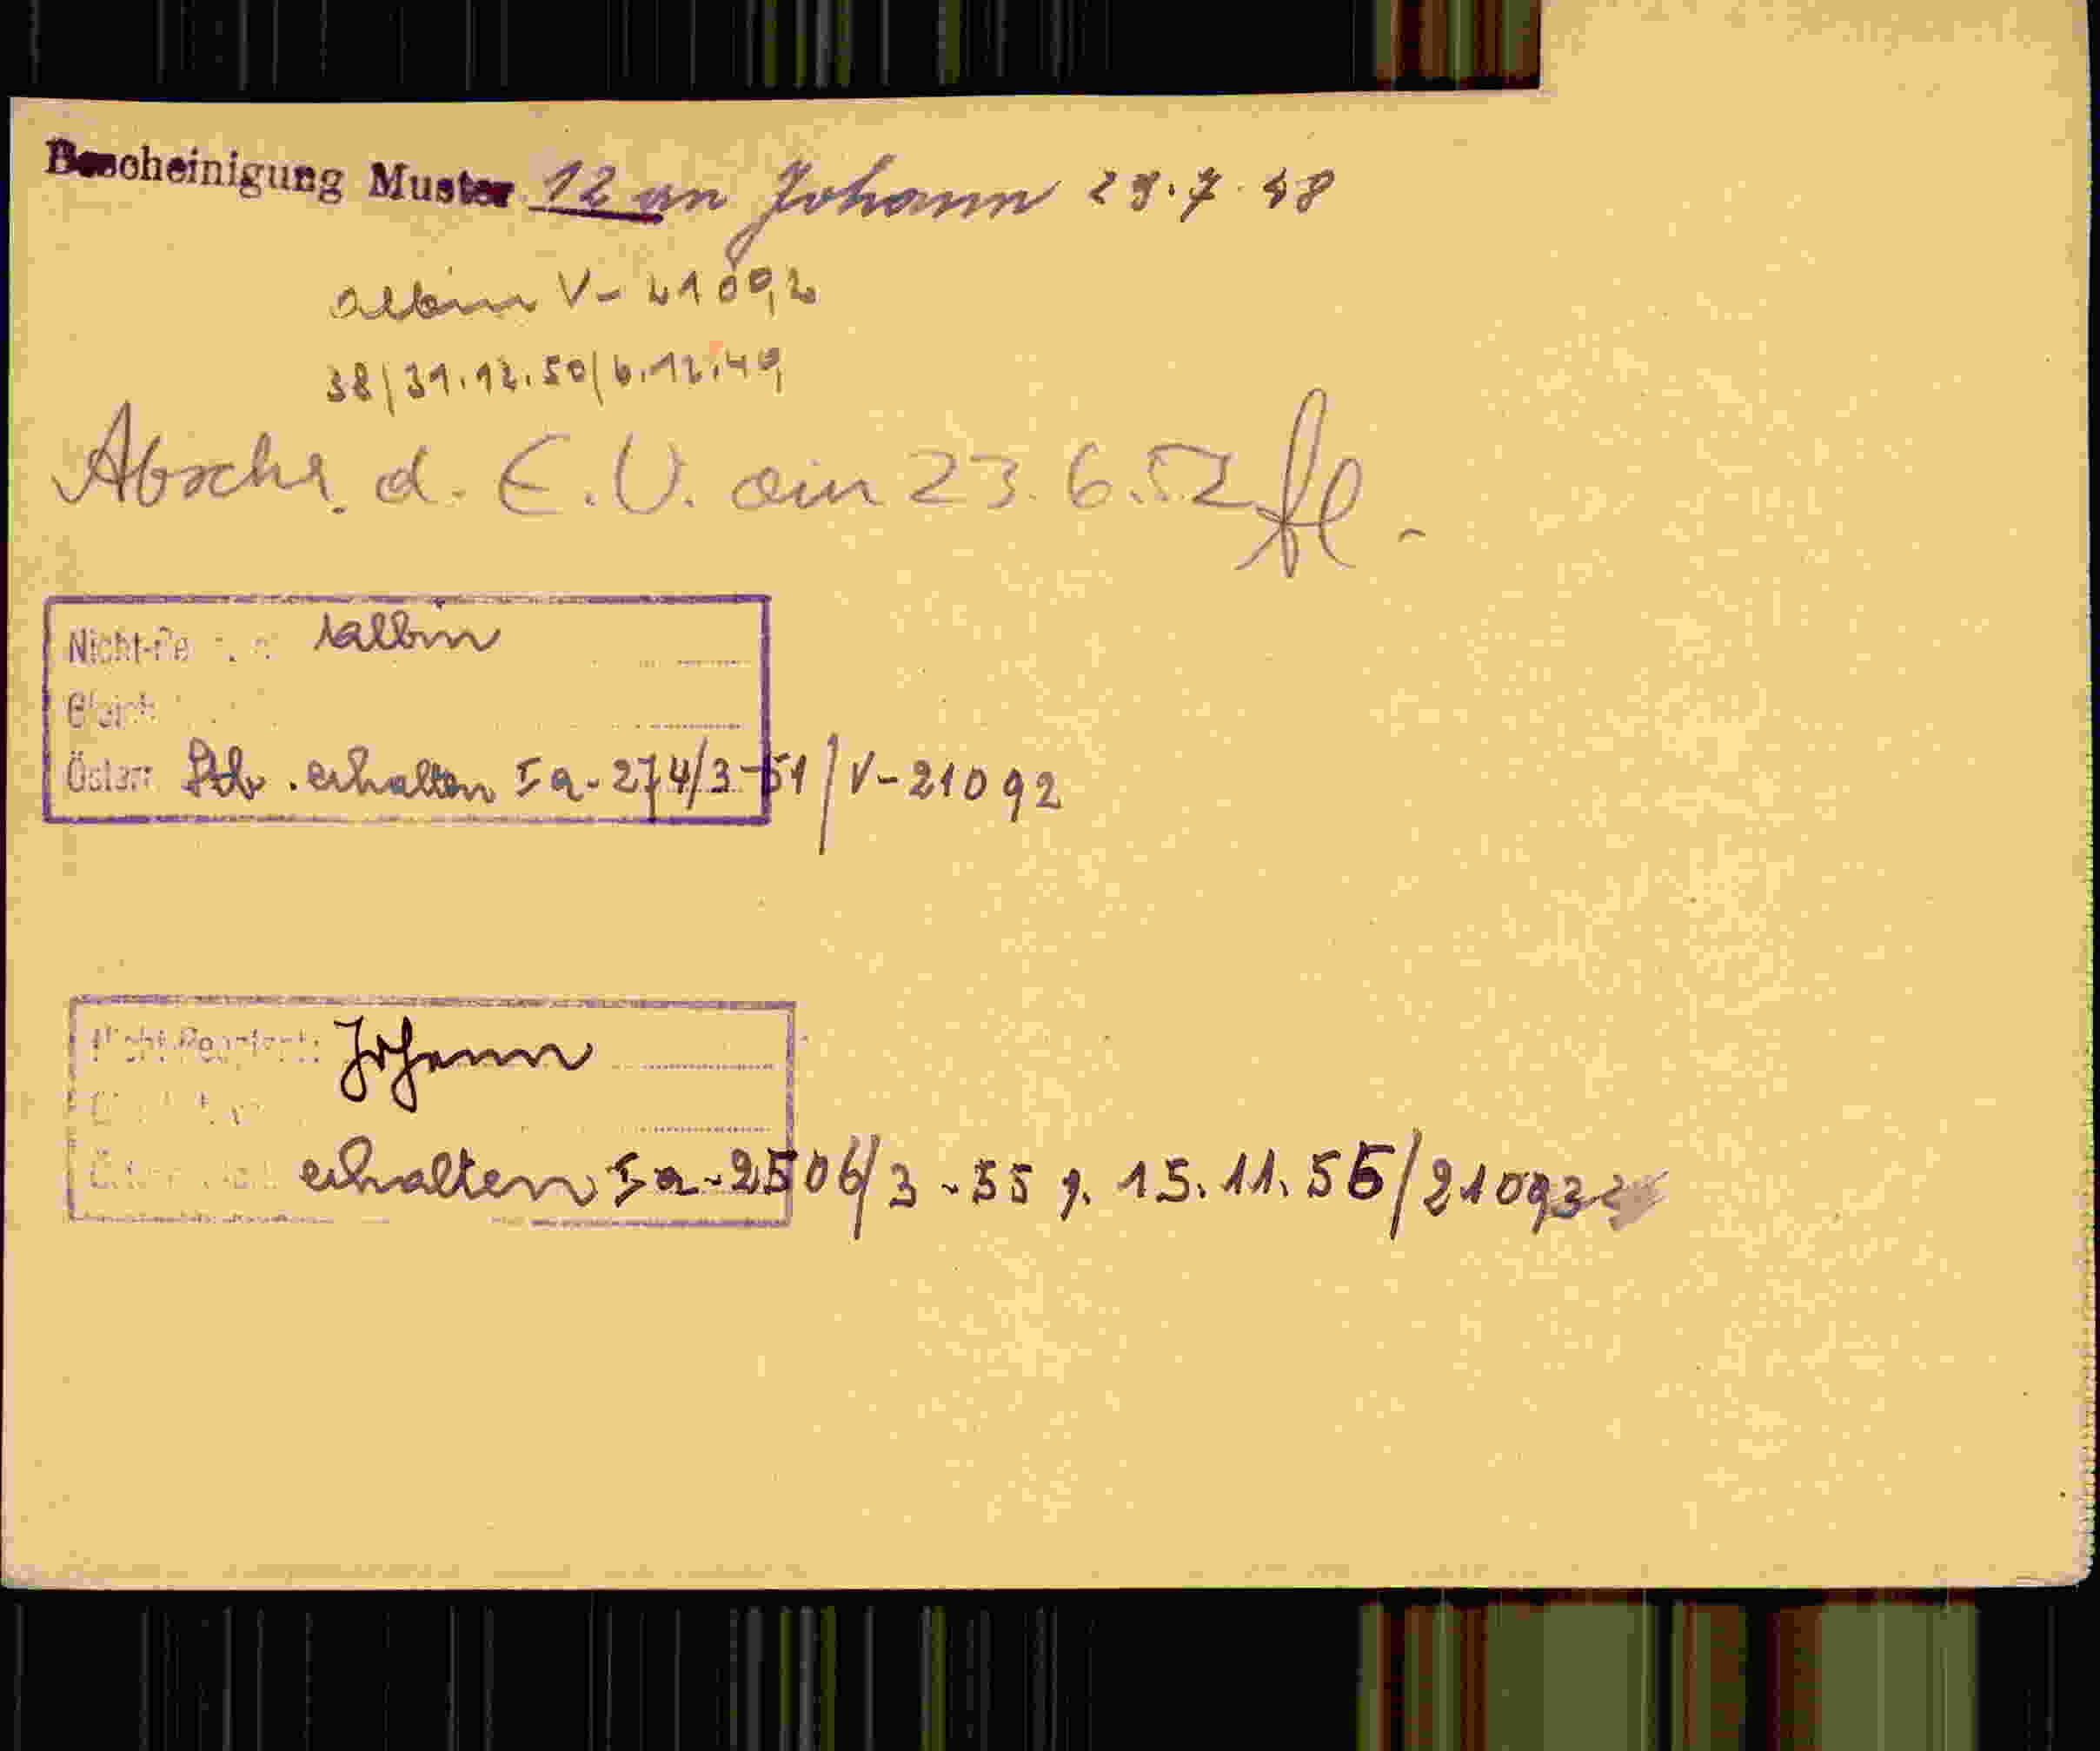 Bescheinigung Muster 12 an Johann 29.7.48
Albin V-21092
38/31.12.50/6.12.49
Abschr. d. E.V. am 23.6.52
Nicht- Albin
Österr. erhalten Ia-274/3-51/V-21092
Johann
erhalten Ia-2506/3-55 v. 15.11.55/21093